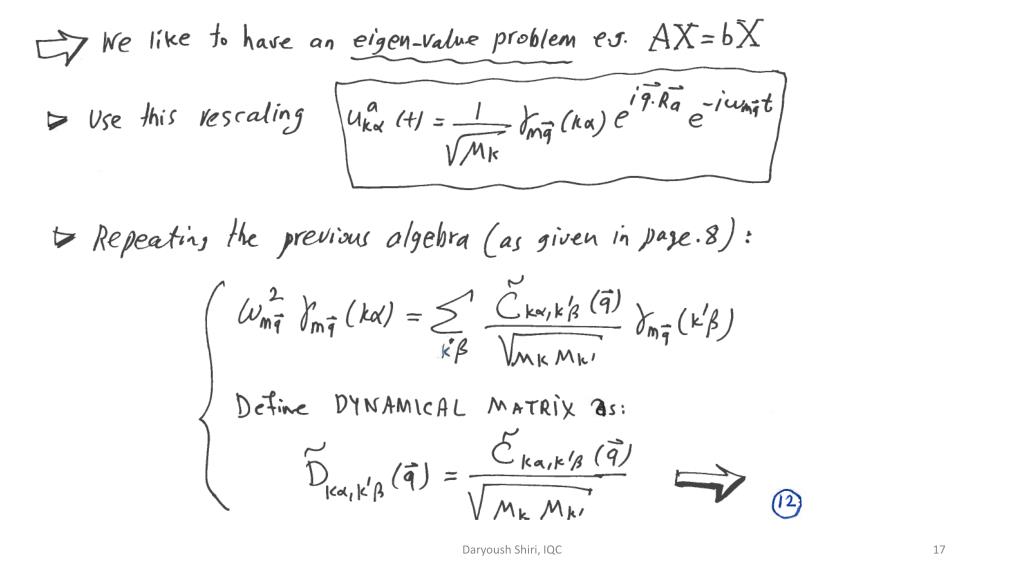 ⇨ We like to have an eigen-value problem e.g. AX=bX
▷ Use this rescaling u^a_{kα}(t) = 1/√M_k γ_{mq⃗}(kα) e^{iq⃗.R⃗a} e^{-iω_{mq⃗}t}
▷ Repeating the previous algebra (as given in page.8):
ω²_{mq⃗} γ_{mq⃗}(kα) = Σ_{k'β} C̃_{kα,k'β}(q⃗)/√M_k M_{k'} γ_{mq⃗}(k'β)
Define DYNAMICAL MATRIX as:
D̃_{kα,k'β}(q⃗) = C̃_{kα,k'β}(q⃗)/√M_k M_{k'} ⇨
12
Daryoush Shiri, IQC 17